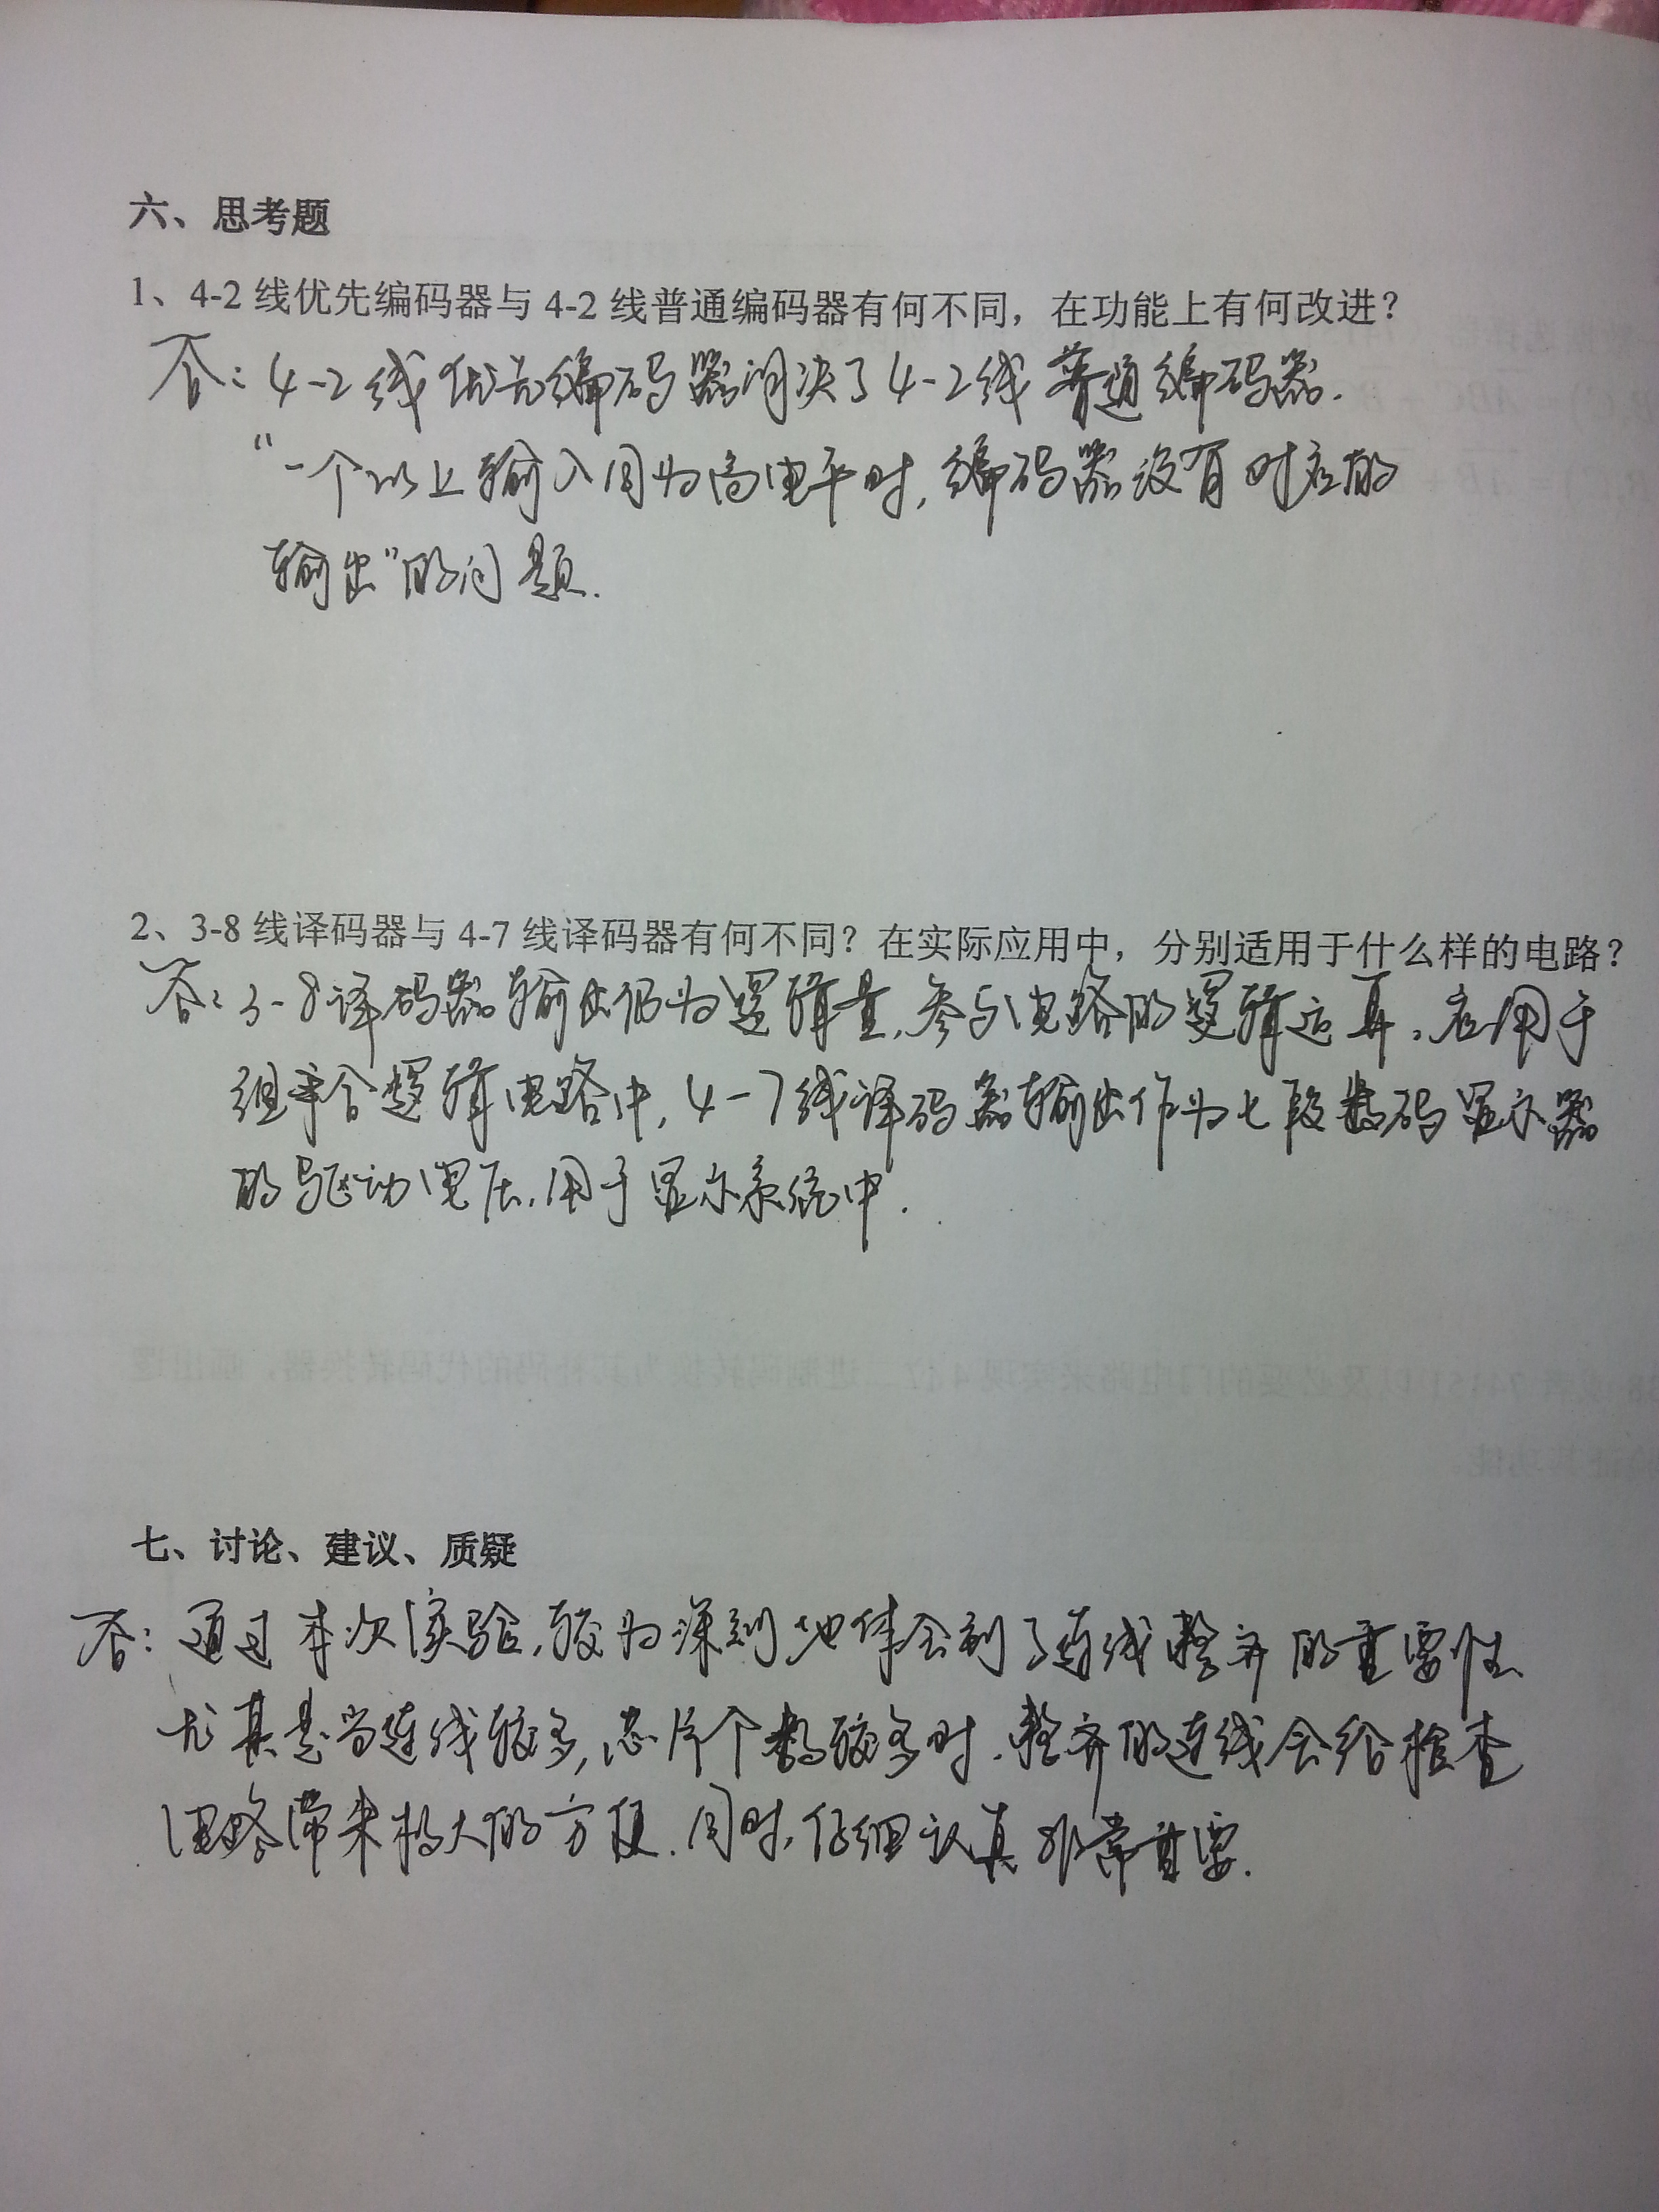 六、思考题
1、4-2 线优先编码器与 4-2 线普通编码器有何不同，在功能上有何改进？
答：4-2线优先编码器解决了4-2线普通编码器.
“一个以上输入同为高电平时,编码器没有对应的
输出”的问题.
2、3-8 线译码器与 4-7 线译码器有何不同？在实际应用中，分别适用于什么样的电路？
答：3-8译码器输出仍为逻辑量,参与电路的逻辑运算。应用于
组合逻辑电路中,4-7线译码器输出作为七段数码显示器
的驱动电压,用于显示系统中.
七、讨论、建议、质疑
答：通过本次实验,较为深刻地体会到了连线整齐的重要性
尤其是当连线较多,芯片个数较多时,整齐的连线会给检查
电路带来极大的方便.同时,仔细认真非常重要.